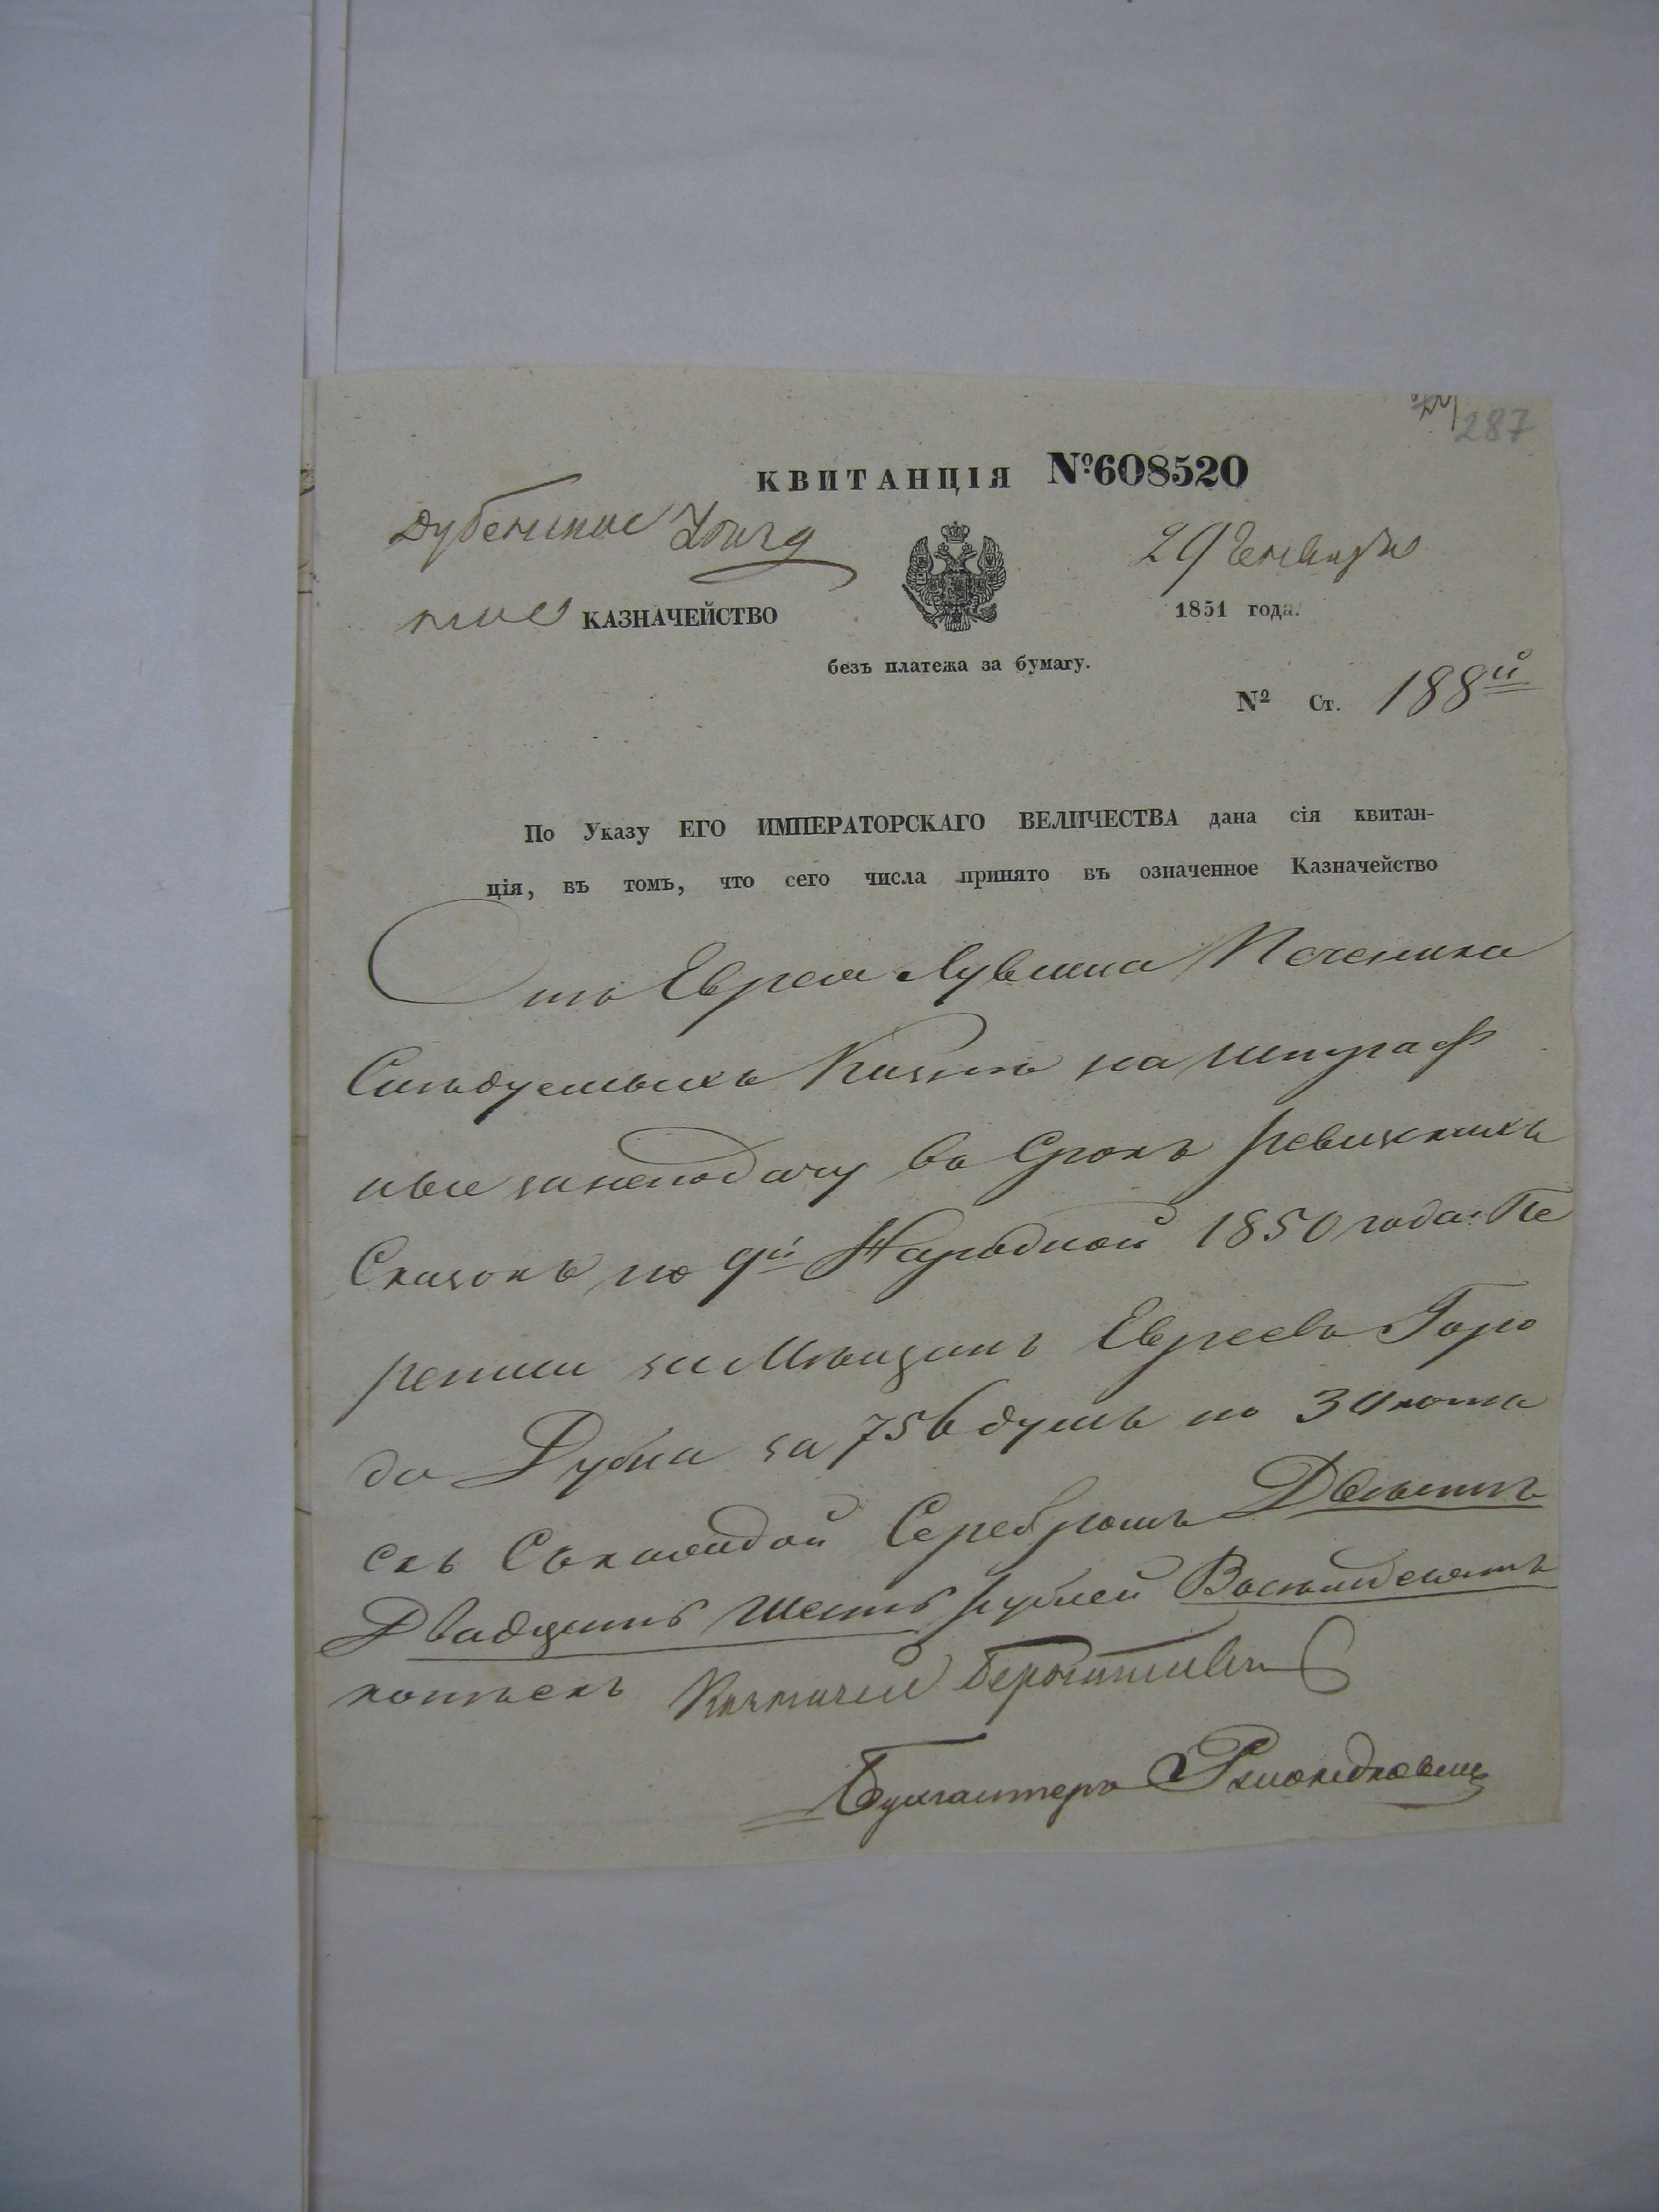 287
КВИТАНЦІЯ №608520
Дубенское Уѣзд
ное КАЗНАЧЕЙСТВО
29 Генваря
1851 года.
безъ платежа за бумагу.
№ Ст. 188й
По Указу ЕГО ИМПЕРАТОРСКАГО ВЕЛИЧЕСТВА дана сія квитан-
ція, въ томъ, что сего числа принято въ означенное Казначейство
Отъ Еврея Лувиша Печеника
Слѣдуемыхъ въ Казну на штраф
ные за неподачу въ Срокъ ревизкихъ
Сказокъ по 9й Народной 1850 года Пе
реписи за Мѣщанъ Евреевъ Горо
да Дубна за 756 душъ по 30 копѣ
екъ Съ каждой Серебромъ Двѣсти
Двадцать Шесть рублей Восемьдесятъ
копѣекъ Казначей
Бухгалтеръ